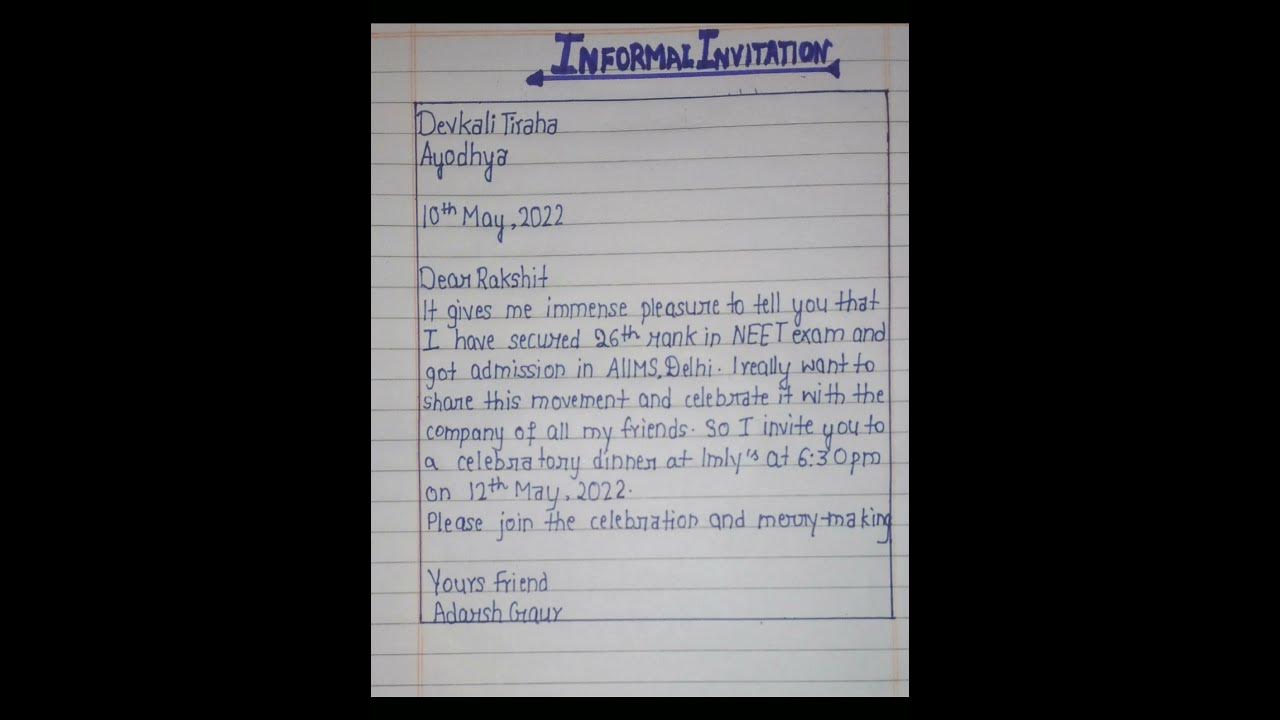 INFORMAL INVITATION
Devkali Tiraha
Ayodhya
10th May, 2022
Dear Rakshit
It gives me immense pleasure to tell you that
I have secured 26th rank in NEET exam and
got admission in AIIMS, Delhi. I really want to
share this movement and celebrate it with the
company of all my friends. So I invite you to
a celebratory dinner at Imly's at 6:30pm
on 12th May, 2022.
Please join the celebration and merry-making
Yours Friend
Adarsh Gaur